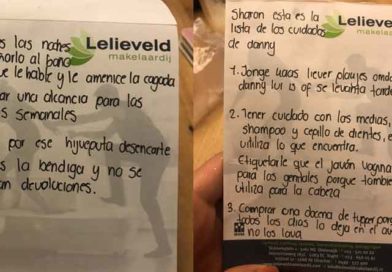 s las notres
ñorlo al pano
ue le hable y le amenice la cagada
ar una alcancia para las
s semanales
por ese hijueputa desencarte
s la bendiga y no se
an devoluciones.
Lelieveld
makelaardij
Sharon esta es la
lista de los cuidados
de danny
Lelieveld
makelaardij
1. Jonge kaas liever plaujes omdat
danny lui is of se levanta tarde
2. Tener cuidado con las medias,
shampoo y cepillo de dientes, el
utiliza lo que encuentra.
Etiquetarle que el jabón vagina
para los genitales porque tambie
utiliza para la cabeza
3. Comprar una docena de tuper porq
todos los dias lo deja en el au
no los lava